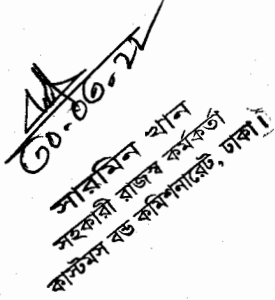 ৩০-০৩-২২
সারমিন খান
সহকারী রাজস্ব কর্মকর্তা
কাস্টমস বন্ড কমিশনারেট, ঢাকা।